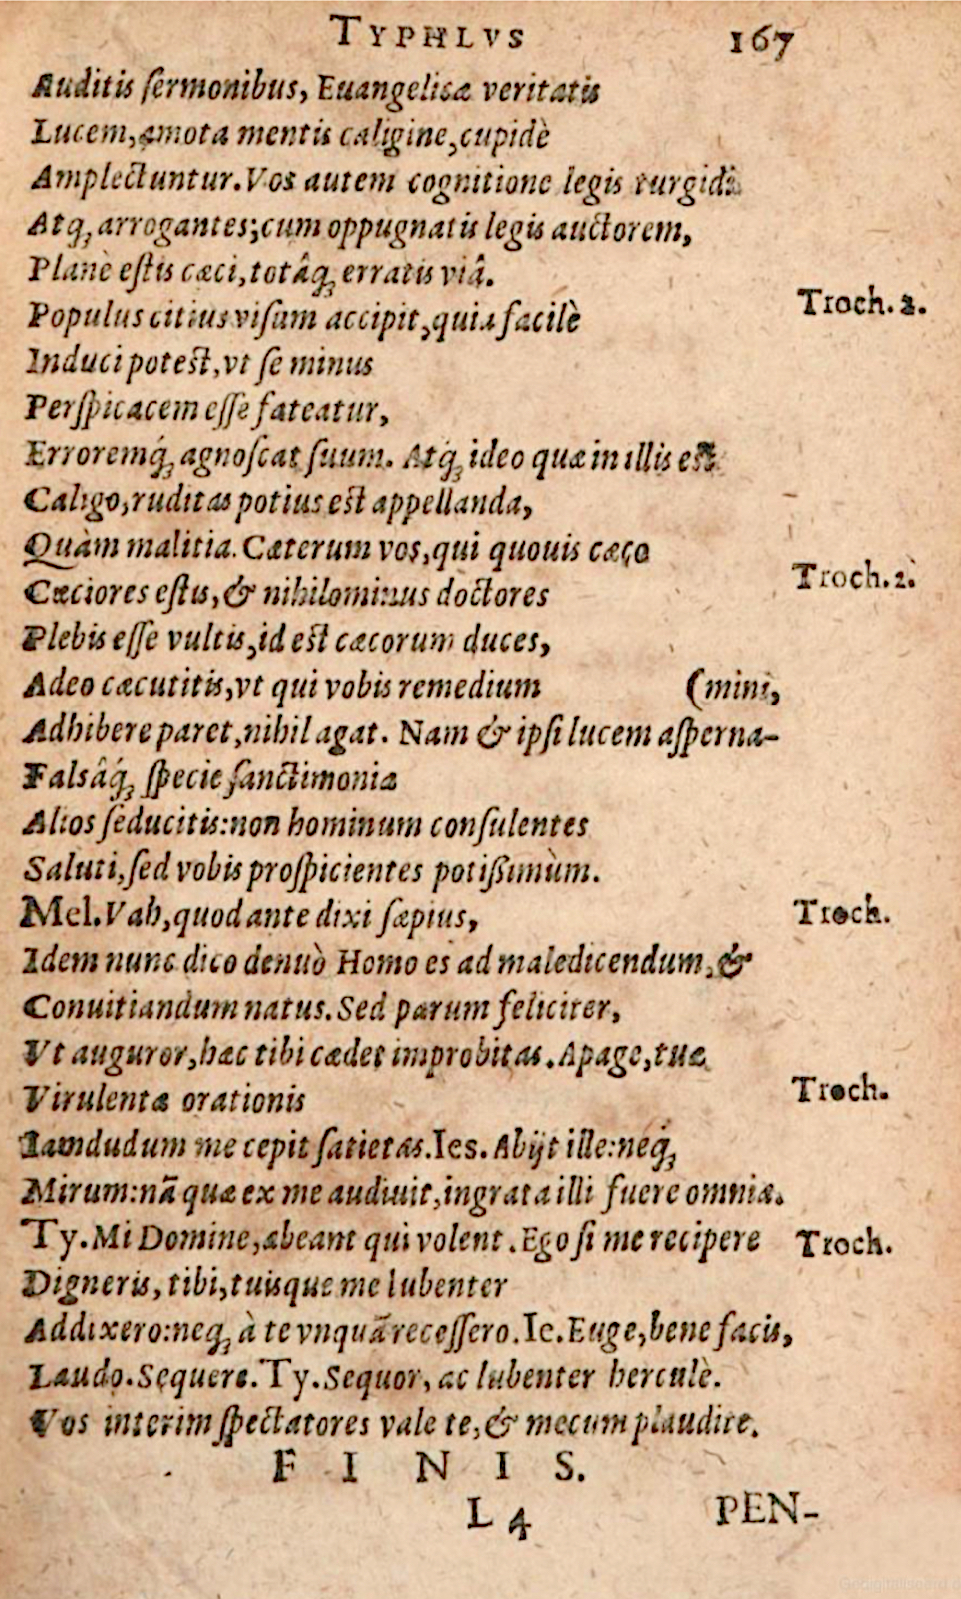 TYPHLVS 167
Auditis ſermonibus, Euangelicæ veritatis
Lucem, amota mentis caligine, cupidè
Amplectuntur. Vos autem cognitione legis turgidi
Atq; arrogantes; cum oppugnatis legis auctorem,
Planè eſtis cæci, totâq; erratis viâ.
Populus citius viſum accipit, quia facilè Troch. 2.
Induci poteſt, vt ſe minus
Perſpicacem eſſe fateatur,
Erroremq́; agnoſcat ſuum. Atq́; ideo quæ in illis eſt
Caligo, ruditas potius eſt appellanda,
Quàm malitia. Cæterum vos, qui quouis cæco
Cæciores eſtis, & nihilominus doctores Troch. 2.
Plebis eſſe vultis, id eſt cæcorum duces,
Adeo cæcutitis, vt qui vobis remedium (mini,
Adhibere paret, nihil agat. Nam & ipſi lucem aſperna-
Falsâq́; ſpecie ſanctimoniæ
Alios ſeducitis: non hominum conſulentes
Saluti, ſed vobis proſpicientes potißimùm.
Mel. Vah, quod ante dixi ſæpius, Troch.
Idem nunc dico denuò Homo es ad maledicendum, &
Conuitiandum natus. Sed parum feliciter,
Vt auguror, hæc tibi cædet improbitas. Apage, tuæ
Virulentæ orationis Troch.
Iamdudum me cepit ſatietas. Ies. Abijt ille: neq́;
Mirum: nã quæ ex me audiuit, ingrata illi fuere omnia.
Ty. Mi Domine, abeant qui volent. Ego ſi me recipere Troch.
Digneris, tibi, tuisque me lubenter
Addixero: neq; à te vnquã receſſero. Ie. Euge, bene facis,
Laudo. Sequere. Ty. Sequor, ac lubenter herculè.
Vos interim ſpectatores vale te, & mecum plaudite.
F I N I S.
L 4 PEN-